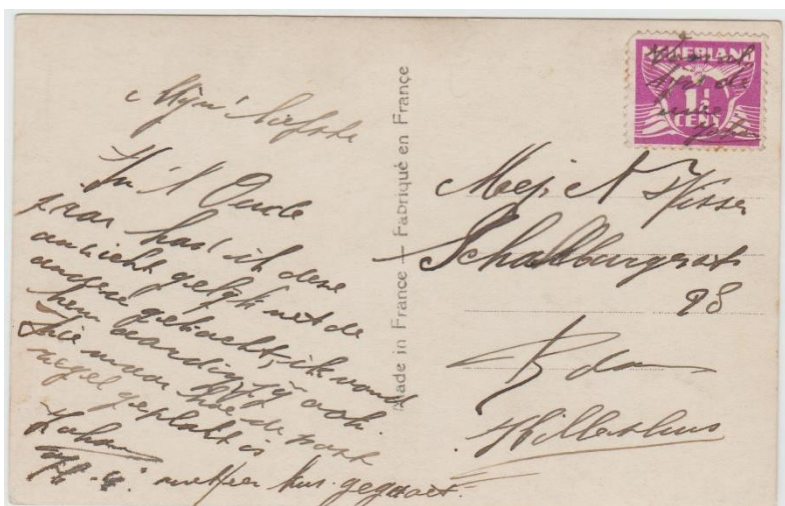 Mijn liefste
In 't Oude
jaar had ik deze
ansicht gelijk met de
andere gekocht, ik vond
hem aardig jij ook.
Zie maar hoe de post
zegel geplakt is
Johan
met een kus gegroet.
Made in France — Fabriqué en France
NEDERLAND
1½
CENT
Mej. A Visser
Schalkburgerstr
98
R dam
Hillesluis